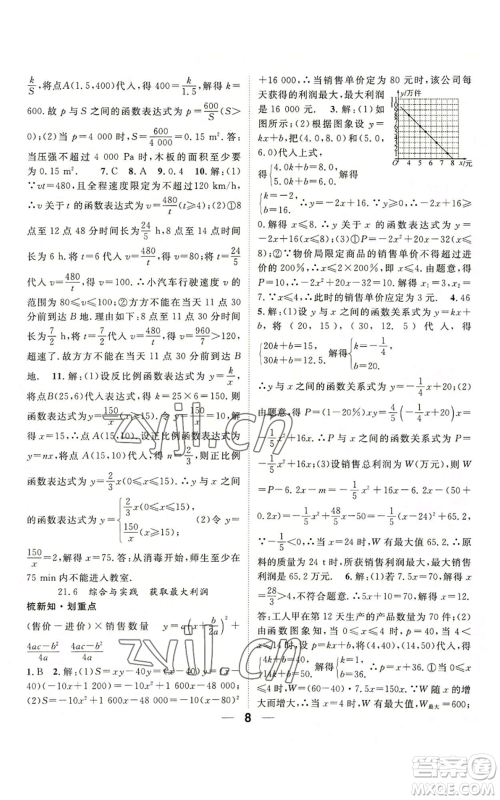 k/S,将点A(1.5,400)代入,得 400=k/1.5,解得 k=
600.故 p 与 S 之间的函数表达式为 p=600/S(S>
0);(2)当 p=4 000 时,S=600/4 000=0.15 m².答:
当压强不超过 4 000 Pa 时,木板的面积至少
0.15 m². 7.C 8.A 9.0.4 10.解:(1)
∵vt=480,且全程速度限定为不超过120 km/h,
∴v 关于 t 的函数表达式为 v=480/t(t≥4);(2)①8
点至 12 点 48 分时间长为 24/5 h,8 点至 14 点时间长
为 6 h,将 t=6 代入 v=480/t,得 v=80;将 t=24/5代
入 v=480/t,得 v=100.答:小汽车行驶速度 v 的
范围为 80≤v≤100;②方方不能在当天 11 点 30
分前到达 B 地.理由:8 点至 11 点 30 分时间长
为 7/2 h,将 t=7/2代入 v=480/t,得 v=960/7>120,∴
方方不能在当天 11 点 30 分前到达 B
地. 11.解:(1)设反比例函数表达式为 y=k/x,
将(25,6)代入表达式,得 k=25×6=150,则反比
例函数表达式为 y=150/x(x≥15),将 y=10 代入,得
x=15,故A(15,10).设正比例函数表达式为
y=nx,将A(15,10)代入,得 n=2/3,则正比例函数
表达式为 y=2/3x(0≤x≤15).∴y 与 x 之间
的函数表达式为 y={2/3x(0≤x≤15),150/x(x≥15); (2)令
150/x=2,解得 x=75.答:从消毒开始,师生至少在
75 min 内不能进入教室.
21.6 综合与实践 获取最大利润
梳新知·划重点
(售价-进价)×销售数量
(4ac-b²)/4a (4ac-b²)/4a
1.B 2.解:(1)S=xy-40y=(x-40)y=(x-
40)(-10x+1200)=-10x²+1600x-48000
(40≤x≤120);(2)S=-10x²+1600x-48000=
-10(x-80)²
+16 000.∴当销售单价定为 80 元时,该公司每
天获得的利润最大,最大利润
是 16 000 元. 3.解:(1)如
图所示;(2)根据图象设 y=
kx+b,把(4.0,8.0)和(6.0,
4.0)代入上式,
y/万件
0 1 2 3 4 5 6 7 8 x/元
得{4k+b=8,6k+b=4,解得{k=-2,b=16,∴y=-2x+16.∵y≥
0.解得 x≤8.∴y 与 x 的函数关系式为 y=
-2x+16(x≤8);(3)①P=-2x²+20x-32(x≤
8);②∵物价局限定商品的销售单价不得超过进
价的 200%,∴x≤2×200%,即 x≤4.由题意,得
P=-2x²+20x-32=16,解得
7.∵x≤4,∴此时的销售单价应定为 3 元. 4.46
5.解:(1)∵y 与 x 满足函数关系式 y=kx+
b, 将 (20, 15), (30, 12.5) 代 入, 得
{20k+b=15,30k+b=12.5,解得{k=-1/4,b=20,
∴y 与 x 之间的函数关系式为 y=-1/4x+20;(2)
由题意,得 P=4/5xy=4/5x(-1/4x+20)=
-1/5x²+16x.∴P 与 x 之间的函数关系式为 P=
-1/5x²+16x;(3)设销售总利润为 W(万元),由题
意,得 W=P-6.2x=-1/5x²+16x-(6.2x+50+
0.2x)=-1/5x²+48/5x-50=-1/5(x-24)²+65.2.
∵-1/5<0,∴x=24 时,W 有最大值,W最大值=
65.2.答:原料的质量为 24 吨时,所获销售利润最大,最大销售
利润是 65.2 万元. 6.解:(1)根据题意,得
答:工人甲在第 12 天生产的产品数量为 70 件;
(2)由函数图象知:当 0≤x≤4 时,P=40;当 4<
x≤14 时,设 P=kx+b,将(4,40),(14,50)代入,
得{4k+b=40,14k+b=50,解得{k=1,b=36,∴P=x+36.①当 0≤
x≤4 时,W=(60-40)·7.5x=150x.∵W 随 x 的
增大而增大,∴当 x=4 时,W 有最大值,W最大=600;
8
zyjl.cn
答案圈